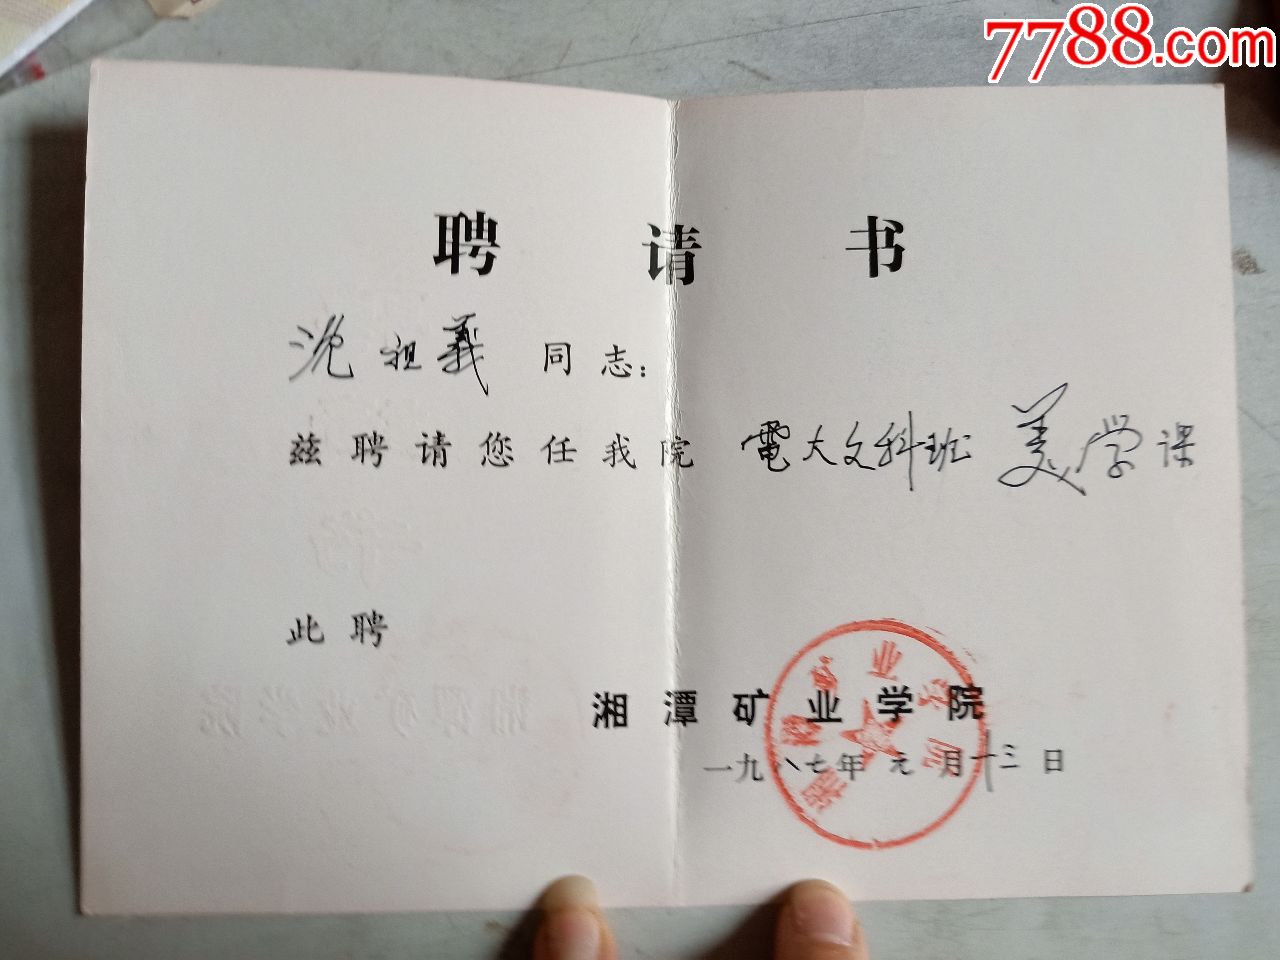 7788.com
聘请书
沈祖義同志：
兹聘请您任我院電大文科班美学课
此聘
湘潭矿业学院
一九八七年元月十三日
湘潭矿业学院